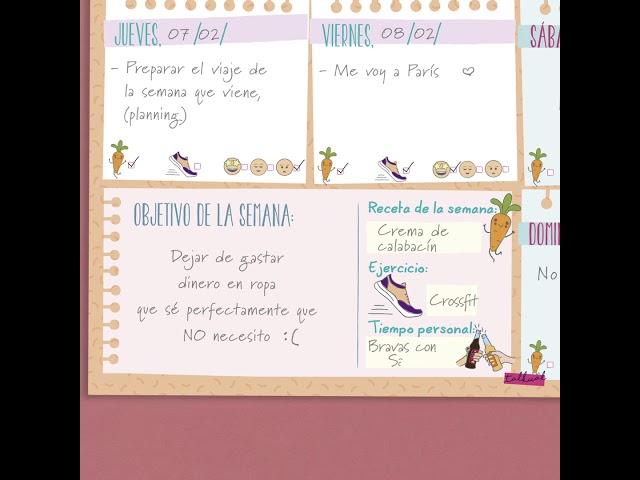 JUEVES, 07/02/
- Preparar el viaje de
la semana que viene,
(planning)
VIERNES, 08/02/
- Me voy a París
SÁBA
OBJETIVO DE LA SEMANA:
Dejar de gastar
dinero en ropa
que sé perfectamente que
NO necesito :(
Receta de la semana:
Crema de
calabacín
Ejercicio:
Crossfit
Tiempo personal:
Bravas con
DOMIN
No